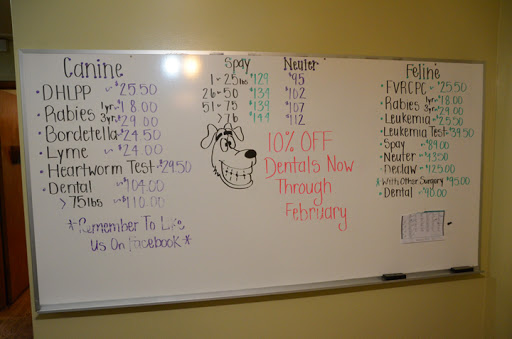 Canine
• DHLPP ~ $25.50
• Rabies 1yr ~ $18.00
3yr ~ $29.00
• Bordetella ~ $24.50
• Lyme ~ $24.00
• Heartworm Test ~ $29.50
• Dental ~ $104.00
> 75 lbs ~ $110.00
* Remember To Like
Us On Facebook *
Spay Neuter
1 - 25 lbs $129 $95
26 - 50 $134 $102
51 - 75 $139 $107
> 76 $144 $112
10% OFF
Dentals Now
Through
February
Feline
• FVRCPC ~ $25.50
• Rabies 1yr ~ $18.00
3yr ~ $29.00
• Leukemia ~ $25.50
• Leukemia Test ~ $39.50
• Spay ~ $89.00
• Neuter ~ $43.50
• Declaw ~ $125.00
* With Other Surgery $95.00
• Dental ~ $90.00